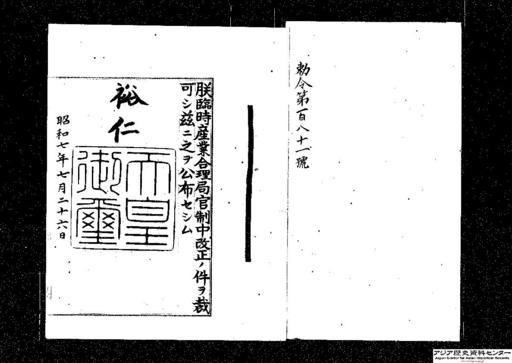 勅令第百八十一號
朕臨時産業合理局官制中改正ノ件ヲ裁
可シ玆ニ之ヲ公布セシム
裕仁
天皇
御璽
昭和七年七月二十六日
アジア歴史資料センター
Japan Center for Asian Historical Records